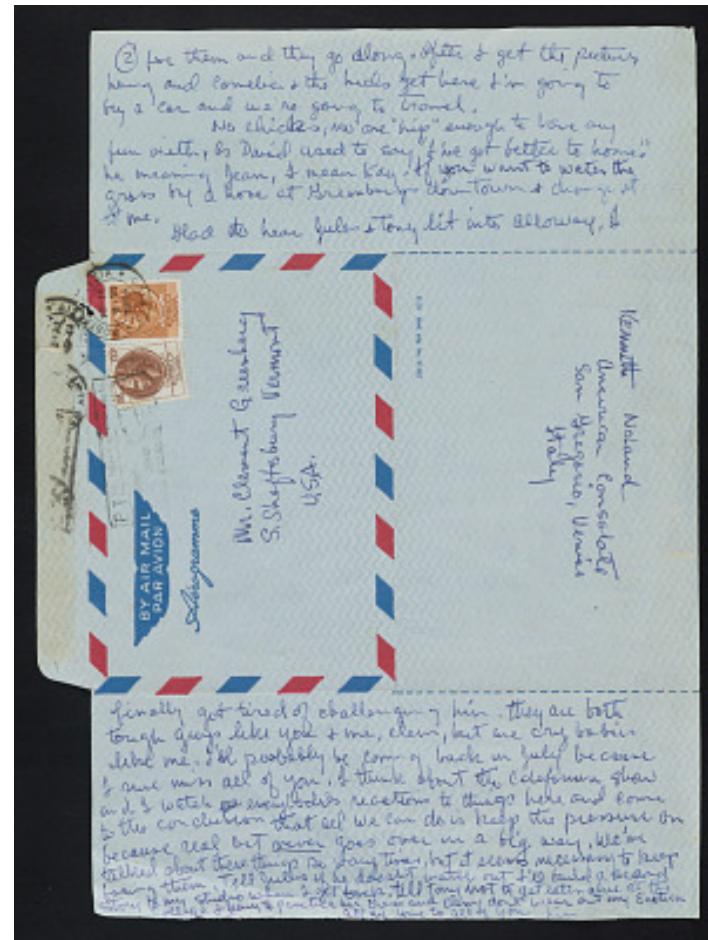 ② for them and they go along. After I get the pictures
hung and Cornelia & the kids get here I'm going to
buy a car and we're going to travel.
No chicks, no one "hip" enough to have any
fun with, as David used to say "I've got better to home".
he meaning Jean, I mean Kay. If you want to water the
grass buy a hose at Greenberg's downtown & charge it
to me.
Glad to hear Jules & Tony lit into Alloway, I
Kenneth Noland
American Consolate
San Gregorio, Venice
Italy
Mr. Clement Greenberg
S. Shaftsbury Vermont
USA.
BY AIR MAIL
PAR AVION
Aerogramme
finally got tired of challenging him. they are both
tough guys like you & me, clem, but are cry babies
like me. I'll probably be coming back in July because
I sure miss all of you. I think about the California show
and I watch everybodies reactions to things here and come
to the conclusion that all we can do is keep the pressure on
because real art never goes over in a big way, We've
talked about these things so many times, but it seems necessary to keep
Tell Jules if he doesn't watch out I'll build a second
story to my studio when I get back, tell Tony not to get
all my love to all of you Ken